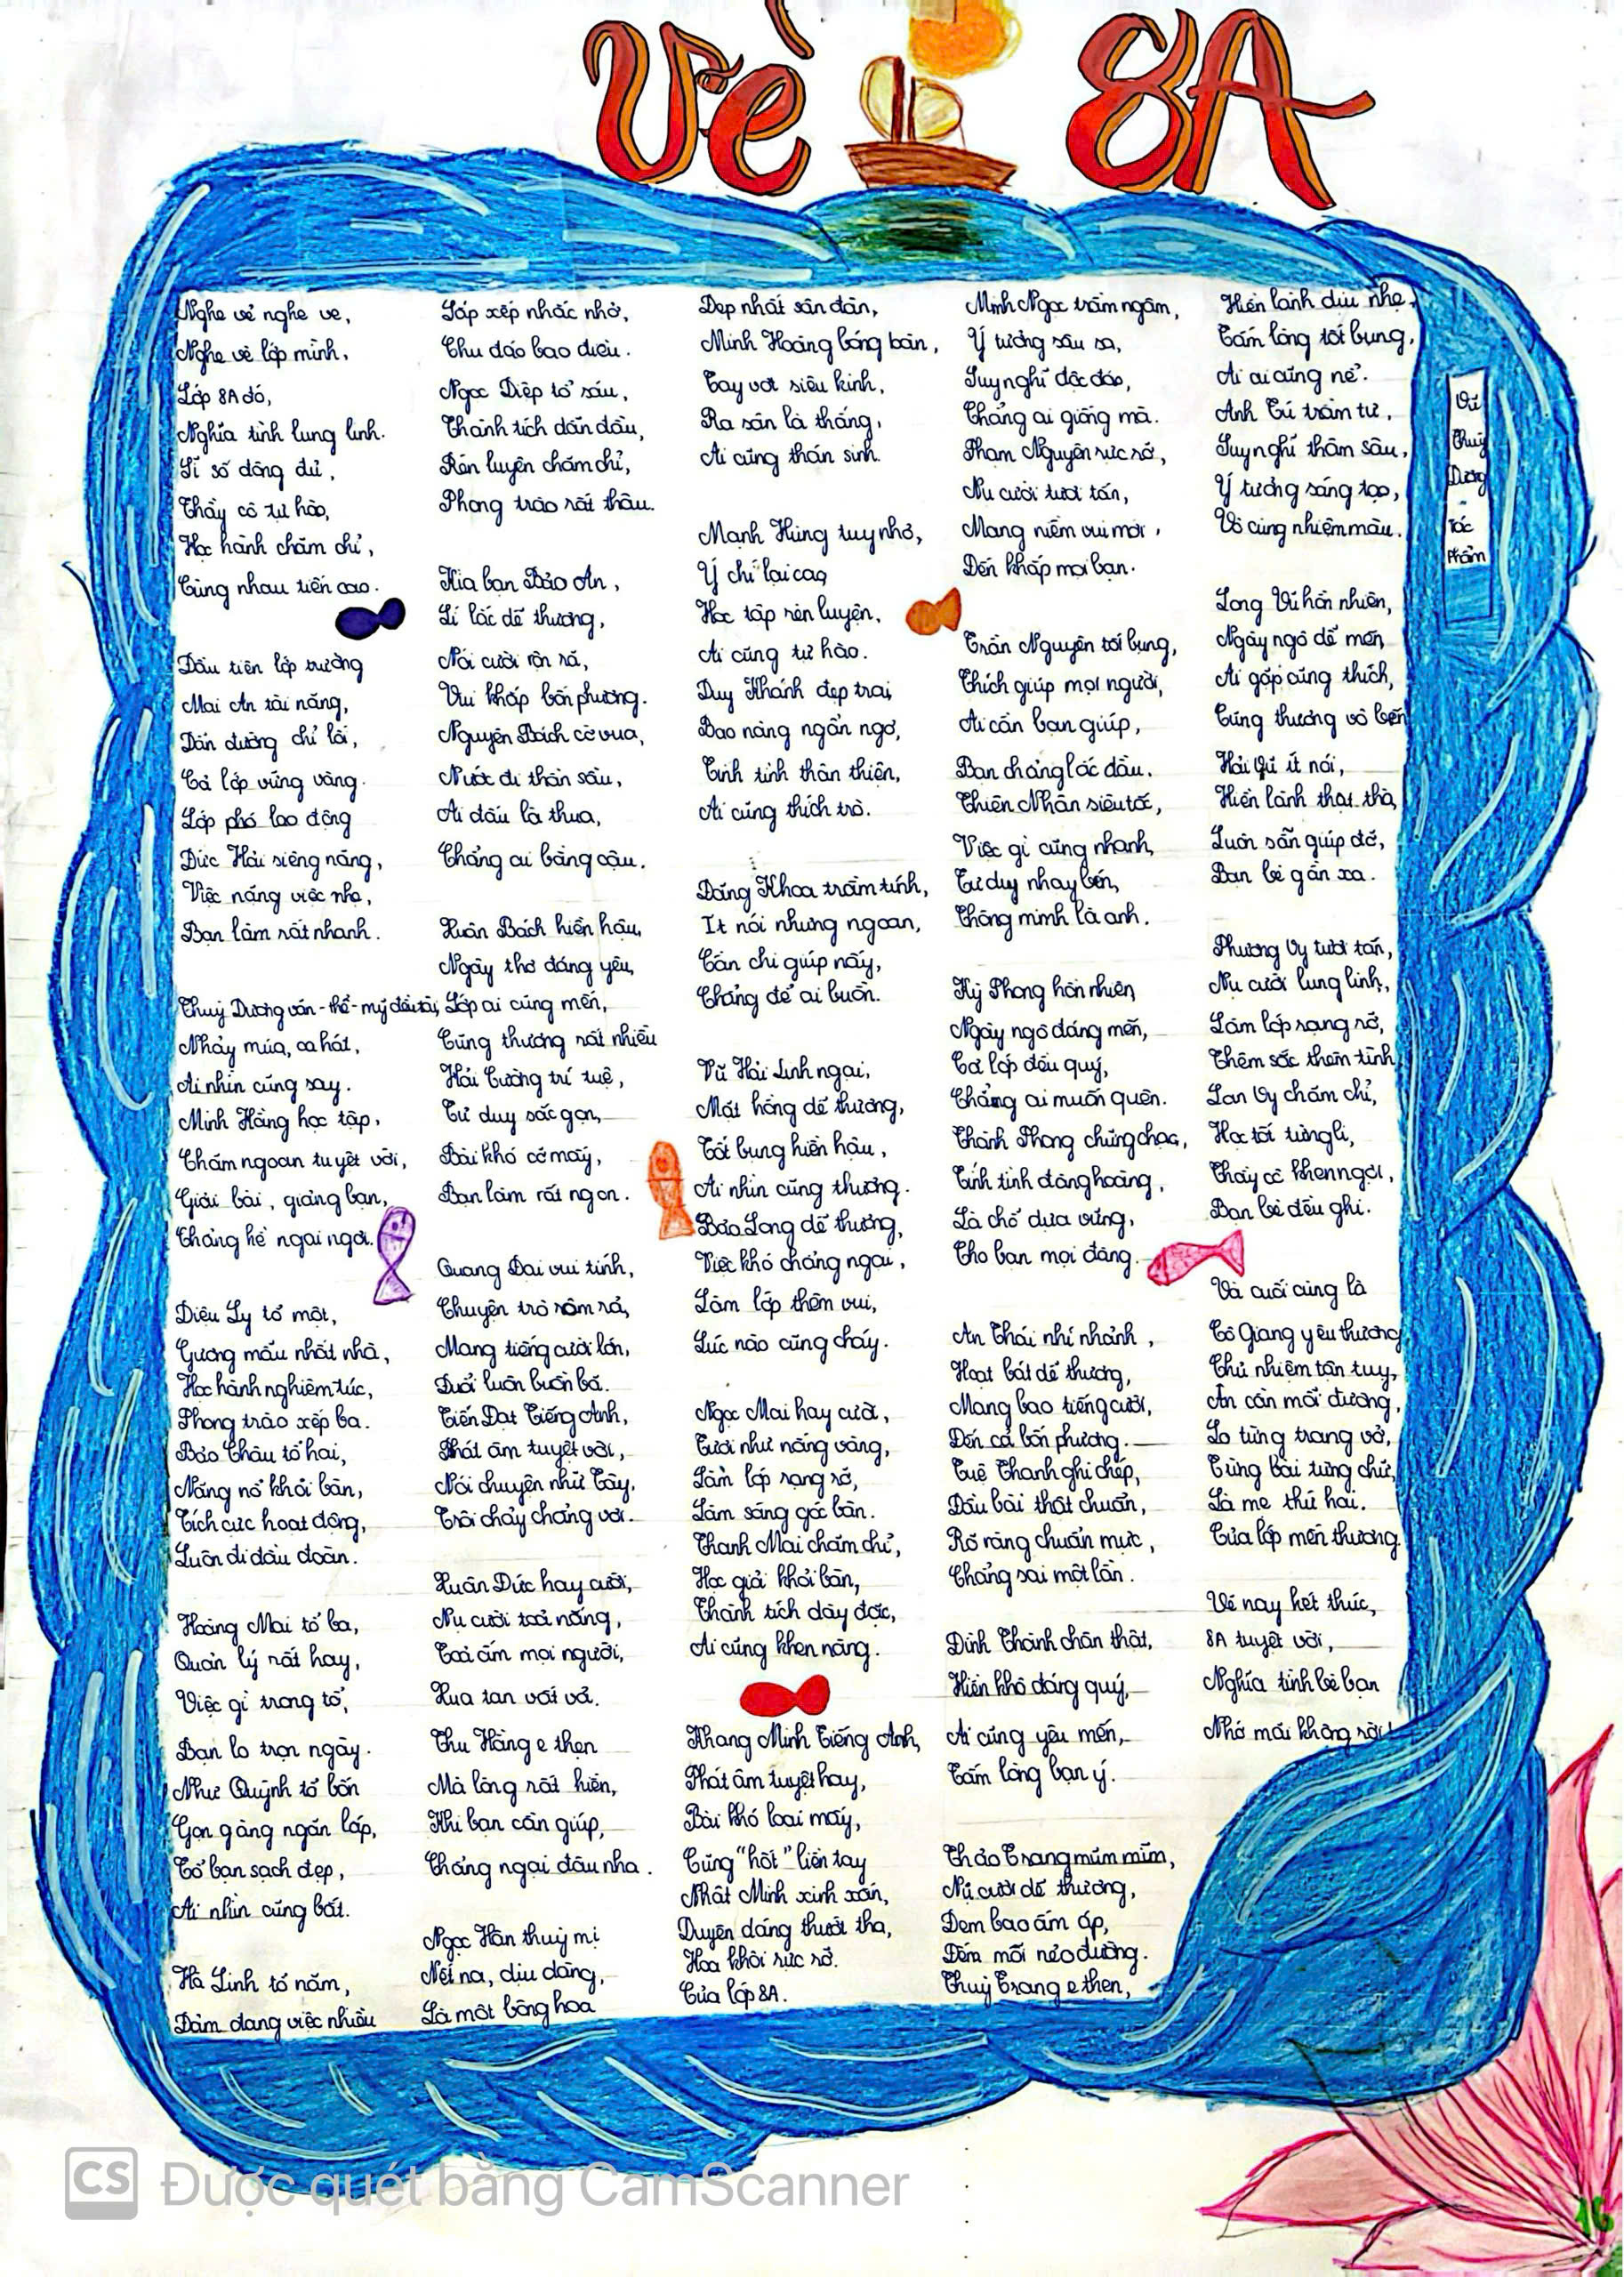 Vè 8A
Nghe vẻ nghe ve,
Nghe vè lớp mình,
Lớp 8A đó,
Nghĩa tình lung linh.
Sĩ số đông đủ,
Thầy cô tự hào,
Học hành chăm chỉ,
Cùng nhau tiến cao.
Đầu tiên lớp trưởng
Mai An tài năng,
Dẫn đường chỉ lối,
Cả lớp vững vàng.
Lớp phó lao động
Đức Hải siêng năng,
Việc nặng việc nhẹ,
Bạn làm rất nhanh.
Thuỳ Dương văn - thể - mỹ đều tài,
Nhảy múa, ca hát,
Ai nhìn cũng say.
Minh Hằng học tập,
Chăm ngoan tuyệt vời,
Giải bài, giảng bạn,
Chẳng hề ngại ngơi.
Diệu Ly tổ một,
Gương mẫu nhất nhà,
Học hành nghiêm túc,
Phong trào xếp ba.
Bảo Châu tổ hai,
Năng nổ khỏi bàn,
Tích cực hoạt động,
Luôn đi đầu đoàn.
Hoàng Mai tổ ba,
Quản lý rất hay,
Việc gì trong tổ,
Bạn lo trọn ngày.
Như Quỳnh tổ bốn
Gọn gàng ngăn lắp,
Tổ bạn sạch đẹp,
Ai nhìn cũng bất.
Hà Linh tổ năm,
Đảm đang việc nhiều
Sắp xếp nhắc nhở,
Chu đáo bao điều.
Ngọc Diệp tổ sáu,
Thành tích dẫn đầu,
Rèn luyện chăm chỉ,
Phong trào rất thâu.
Kìa bạn Bảo An,
Lí lắc dễ thương,
Nói cười rộn rã,
Vui khắp bốn phương.
Nguyên Bách cờ vua,
Nước đi thần sầu,
Ai đấu là thua,
Chẳng ai bằng cậu.
Xuân Bách hiền hậu,
Ngây thơ đáng yêu,
Lớp ai cũng mến,
Cũng thương rất nhiều
Hải Cường trí tuệ,
Tư duy sắc gọn,
Bài khó cỡ mấy,
Bạn làm rất ngon.
Quang Đại vui tính,
Chuyện trò rôm rả,
Mang tiếng cười lớn,
Đuổi luôn buồn bã.
Tiến Đạt Tiếng Anh,
Phát âm tuyệt vời,
Nói chuyện như Tây,
Trôi chảy chẳng vơi.
Xuân Đức hay cười,
Nụ cười toả nắng,
Toả ấm mọi người,
Xua tan vất vả.
Thu Hằng e thẹn
Mà lòng rất hiền,
Khi bạn cần giúp,
Chẳng ngại đâu nha.
Ngọc Hân thuỳ mị
Nết na, dịu dàng,
Là một bông hoa
Đẹp nhất sân đàn,
Minh Hoàng bóng bàn,
Tay vợt siêu kinh,
Ra sân là thắng,
Ai cũng thán sinh.
Mạnh Hùng tuy nhỏ,
Ý chí lại cao
Học tập rèn luyện,
Ai cũng tự hào.
Duy Khánh đẹp trai,
Bao nàng ngẩn ngơ,
Tính tình thân thiện,
Ai cũng thích trò.
Đăng Khoa trầm tính,
Ít nói nhưng ngoan,
Cần chi giúp nấy,
Chẳng để ai buồn.
Vũ Hải Linh ngại,
Mặt hồng dễ thương,
Tốt bụng hiền hậu,
Ai nhìn cũng thương.
Bảo Long dễ thương,
Việc khó chẳng ngại,
Làm lớp thêm vui,
Lúc nào cũng cháy.
Ngọc Mai hay cười,
Tươi như nắng vàng,
Làm lớp rạng rỡ,
Làm sáng góc bàn.
Thanh Mai chăm chỉ,
Học giỏi khỏi bàn,
Thành tích dày đặc,
Ai cũng khen nàng.
Khang Minh Tiếng Anh,
Phát âm tuyệt hay,
Bài khó loại mấy,
Cũng "hốt" liền tay
Nhật Minh xinh xắn,
Duyên dáng thướt tha,
Hoa khôi rực rỡ.
Của lớp 8A.
Minh Ngọc trầm ngâm,
Ý tưởng sâu sa,
Suy nghĩ độc đáo,
Chẳng ai giống mà.
Phạm Nguyên rực rỡ,
Nụ cười tươi tắn,
Mang niềm vui mới,
Đến khắp mọi bạn.
Trần Nguyên tốt bụng,
Thích giúp mọi người,
Ai cần bạn giúp,
Bạn chẳng lắc đầu.
Thiện Nhân siêu tốc,
Việc gì cũng nhanh,
Tư duy nhạy bén,
Thông minh là anh.
Kỳ Phong hồn nhiên,
Ngây ngô đáng mến,
Cả lớp đều quý,
Chẳng ai muốn quên.
Thành Phong chững chạc,
Tính tình đàng hoàng,
Là chỗ dựa vững,
Cho bạn mọi đàng.
An Thái nhí nhảnh,
Hoạt bát dễ thương,
Mang bao tiếng cười,
Đến cả bốn phương.
Tuệ Thanh ghi chép,
Đầu bài thật chuẩn,
Rõ ràng chuẩn mực,
Chẳng sai một lần.
Đình Thành chân thật,
Hiền khô đáng quý,
Ai cũng yêu mến,
Tấm lòng bạn ý.
Thảo Trang mũm mĩm,
Nụ cười dễ thương,
Đem bao ấm áp,
Đến mỗi nẻo đường.
Thuỳ Trang e thẹn,
Hiền lành dịu nhẹ,
Tấm lòng tốt bụng,
Ai ai cũng nể.
Anh Tú trầm tư,
Suy nghĩ thâm sâu,
Ý tưởng sáng tạo,
Vô cùng nhiệm màu.
Long Vũ hồn nhiên,
Ngây ngô dễ mến,
Ai gặp cũng thích,
Cũng thương vô bến
Hải Vũ ít nói,
Hiền lành thật thà,
Luôn sẵn giúp đỡ,
Bạn bè gần xa.
Phương Vy tươi tắn,
Nụ cười lung linh,
Làm lớp rạng rỡ,
Thêm sắc thêm tình
Lan Vy chăm chỉ,
Học tốt từng li,
Thầy cô khen ngợi,
Bạn bè đều ghi.
Và cuối cùng là
Cô Giang yêu thương
Chủ nhiệm tận tuỵ,
Ân cần mỗi đường,
Lo từng trang vở,
Từng bài từng chữ,
Là mẹ thứ hai.
Của lớp mến thương.
Vè nay kết thúc,
8A tuyệt vời,
Nghĩa tình bè bạn
Nhớ mãi không rời!
Vũ
Thuỳ
Dương
-
tác
phẩm
16
CS Được quét bằng CamScanner